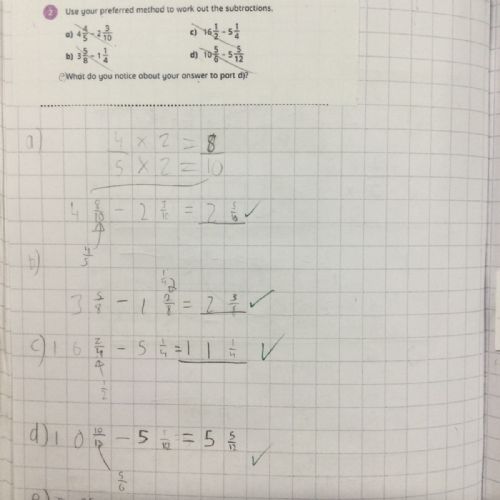 2 Use your preferred method to work out the subtractions.
a) 4 4/5 - 2 3/10
c) 16 1/2 - 5 1/4
b) 3 5/8 - 1 1/4
d) 10 5/6 - 5 5/12
What do you notice about your answer to part d)?
a) 4 × 2 = 8
5 × 2 = 10
4 8/10 - 2 3/10 = 2 5/10 ✓
4/5
b)
1/4
3 5/8 - 1 2/8 = 2 3/8 ✓
c) 16 2/4 - 5 1/4 = 11 1/4 ✓
1/2
d) 10 10/12 - 5 /12 = 5 5/12 ✓
5/6
e)